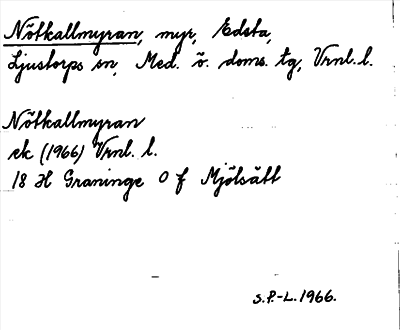 Nötkallmyran, myr, Edsta,
Ljustorps sn, Med. ö. doms. tg, Vrnl. l.
Nötkallmyran
ek (1966) Vrnl. l.
18 H Graninge 0 f Mjölsätt
S.P.-L. 1966.